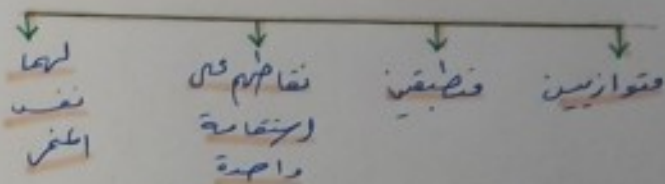 متوازيين
منطبقين
نقاطهم على
استقامة
واحدة
لهما
نفس
المنحى